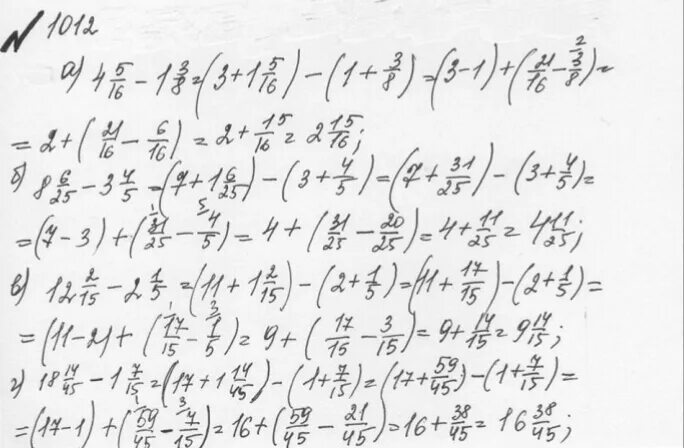 № 1012
а) 4 5/16 - 1 3/8 = (3 + 1 5/16) - (1 + 3/8) = (3-1) + (21/16 - 3/8 ²) =
= 2 + (21/16 - 6/16) = 2 + 15/16 = 2 15/16;
б) 8 6/25 - 3 4/5 = (7 + 1 6/25) - (3 + 4/5) = (7 + 31/25) - (3 + 4/5) =
= (7-3) + (31/25 ¹ - 4/5 ⁵) = 4 + (31/25 - 20/25) = 4 + 11/25 = 4 11/25;
в) 12 2/15 - 2 1/5 = (11 + 1 2/15) - (2 + 1/5) = (11 + 17/15) - (2 + 1/5) =
= (11-2) + (17/15 ¹ - 1/5 ³) = 9 + (17/15 - 3/15) = 9 + 14/15 = 9 14/15;
г) 18 14/45 - 1 7/15 = (17 + 1 14/45) - (1 + 7/15) = (17 + 59/45) - (1 + 7/15) =
= (17-1) + (59/45 ¹ - 7/15 ³) = 16 + (59/45 - 21/45) = 16 + 38/45 = 16 38/45;